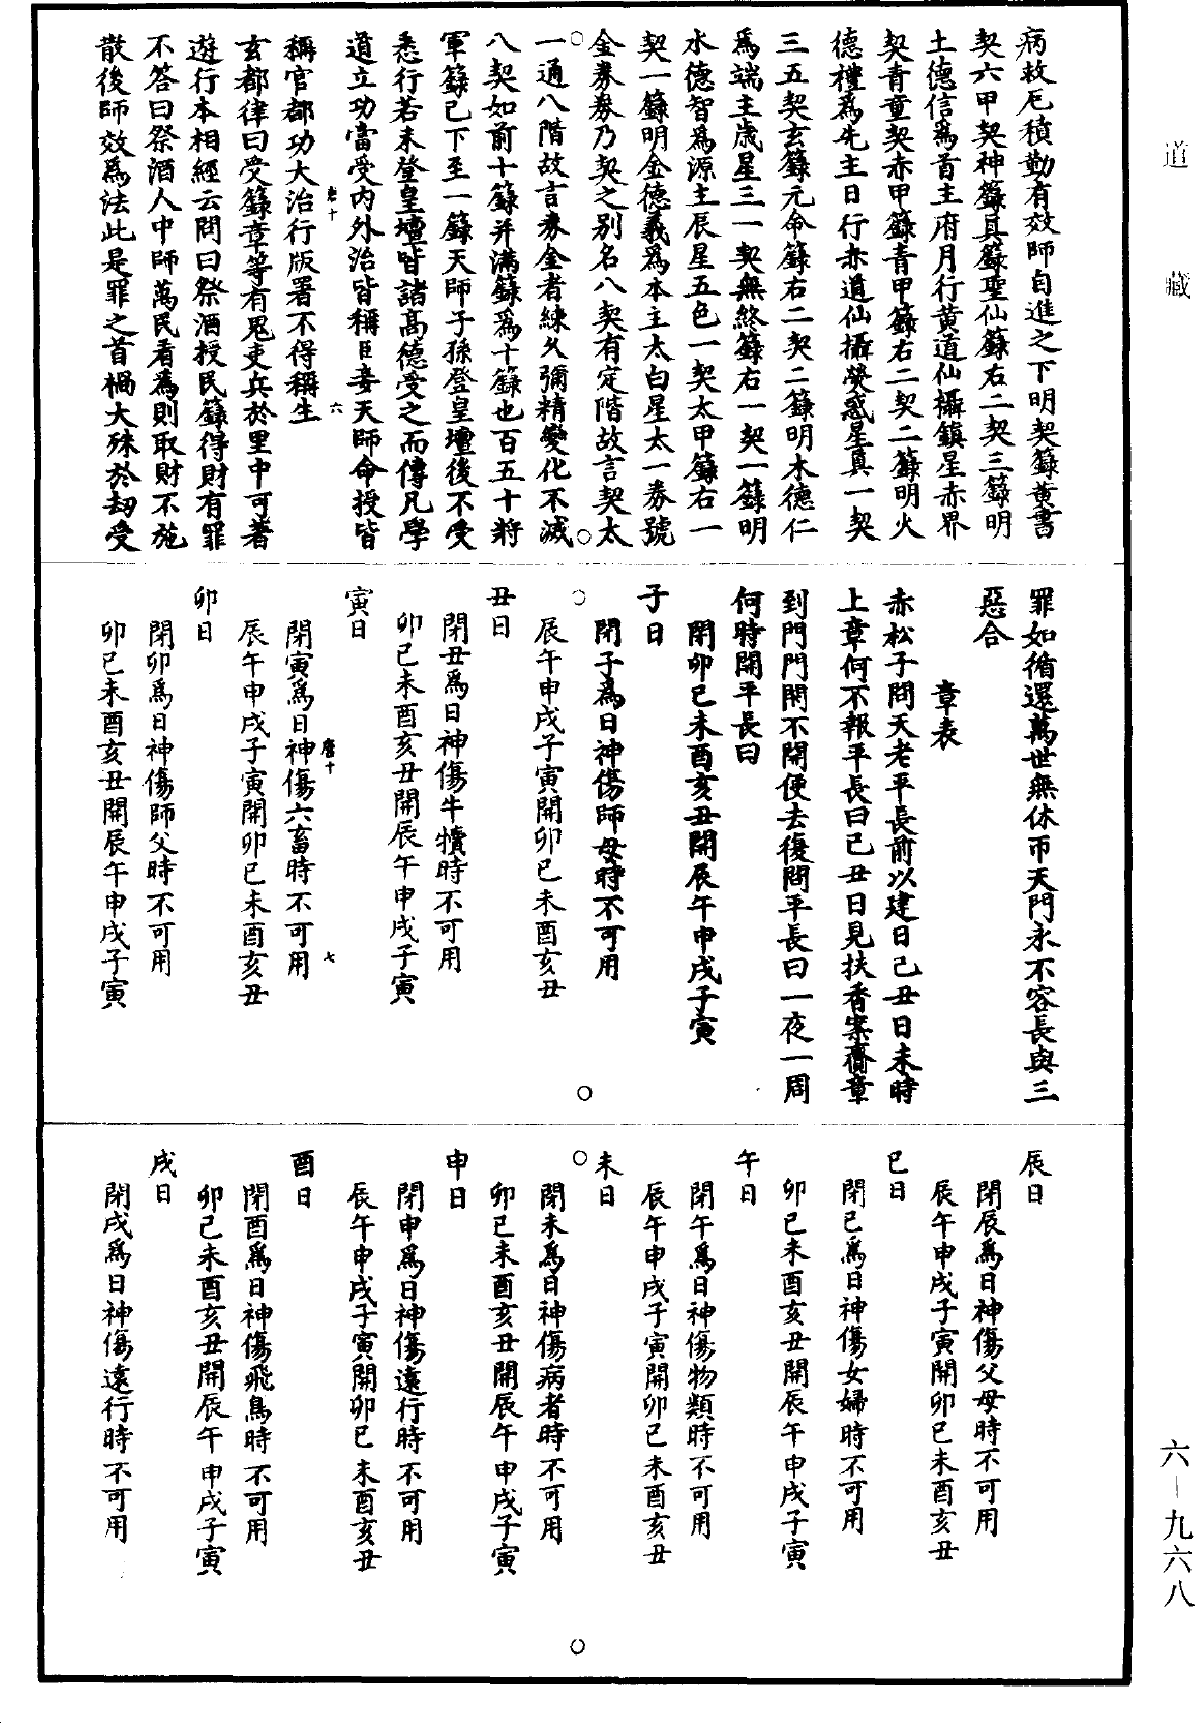 道藏
病救厄積勤有效師自進之下明契籙黄書
契六甲契神籙真籙聖仙籙右二契三籙明
土德信爲首主府月行黄道仙攝鎮星赤界
契青童契赤甲籙青甲籙右二契二籙明火
德禮爲先主日行赤道仙攝熒惑星真一契
三五契玄籙元命籙右二契二籙明木德仁
爲端主歲星三一契無終籙右一契一籙明
水德智爲源主辰星五色一契太甲籙右一
契一籙明金德義爲本主太白星太一券號
金券券乃契之别名八契有定階故言契太
一通八階故言券金者練久彌精變化不滅
八契如前十籙并滿籙爲十籙也百五十將
軍籙已下至一籙天師子孫登皇壇後不受
悉行若未登皇壇皆諸高德受之而傳凡學
道立功當受内外治皆稱臣妾天師命授皆
稱官都功大治行版署不得稱生
唐十
六
玄都律曰受籙章等有鬼吏兵於里中可著
遊行本相經云問曰祭酒授民籙得財有罪
不答曰祭酒人中師萬民看爲則取財不施
散後師效爲法此是罪之首禍大殊於劫受
罪如循還萬世無休帀天門永不容長與三
惡合
章表
赤松子問天老平長前以建日己丑日未時
上章何不報平長曰己丑日見扶香案齎章
到門門閇不開便去復問平長曰一夜一周
何時開平長曰
閇卯巳未酉亥丑開辰午申戌子寅
子日
閉子爲日神傷師母時不可用
辰午申戌子寅開卯巳未酉亥丑
丑日
閉丑爲日神傷牛犢時不可用
卯巳未酉亥丑開辰午申戌子寅
寅日
閉寅爲日神傷六畜時不可用
唐十
七
辰午申戌子寅開卯巳未酉亥丑
卯日
閉卯爲日神傷師父時不可用
卯巳未酉亥丑開辰午申戌子寅
辰日
閉辰爲日神傷父母時不可用
辰午申戌子寅開卯巳未酉亥丑
巳日
閉巳爲日神傷女婦時不可用
卯巳未酉亥丑開辰午申戌子寅
午日
閉午爲日神傷物類時不可用
辰午申戌子寅開卯巳未酉亥丑
未日
閉未爲日神傷病者時不可用
卯巳未酉亥丑開辰午申戌子寅
申日
閉申爲日神傷遠行時不可用
辰午申戌子寅開卯巳未酉亥丑
酉日
閉酉爲日神傷飛鳥時不可用
卯巳未酉亥丑開辰午申戌子寅
戌日
閉戌爲日神傷遠行時不可用
六－九六八